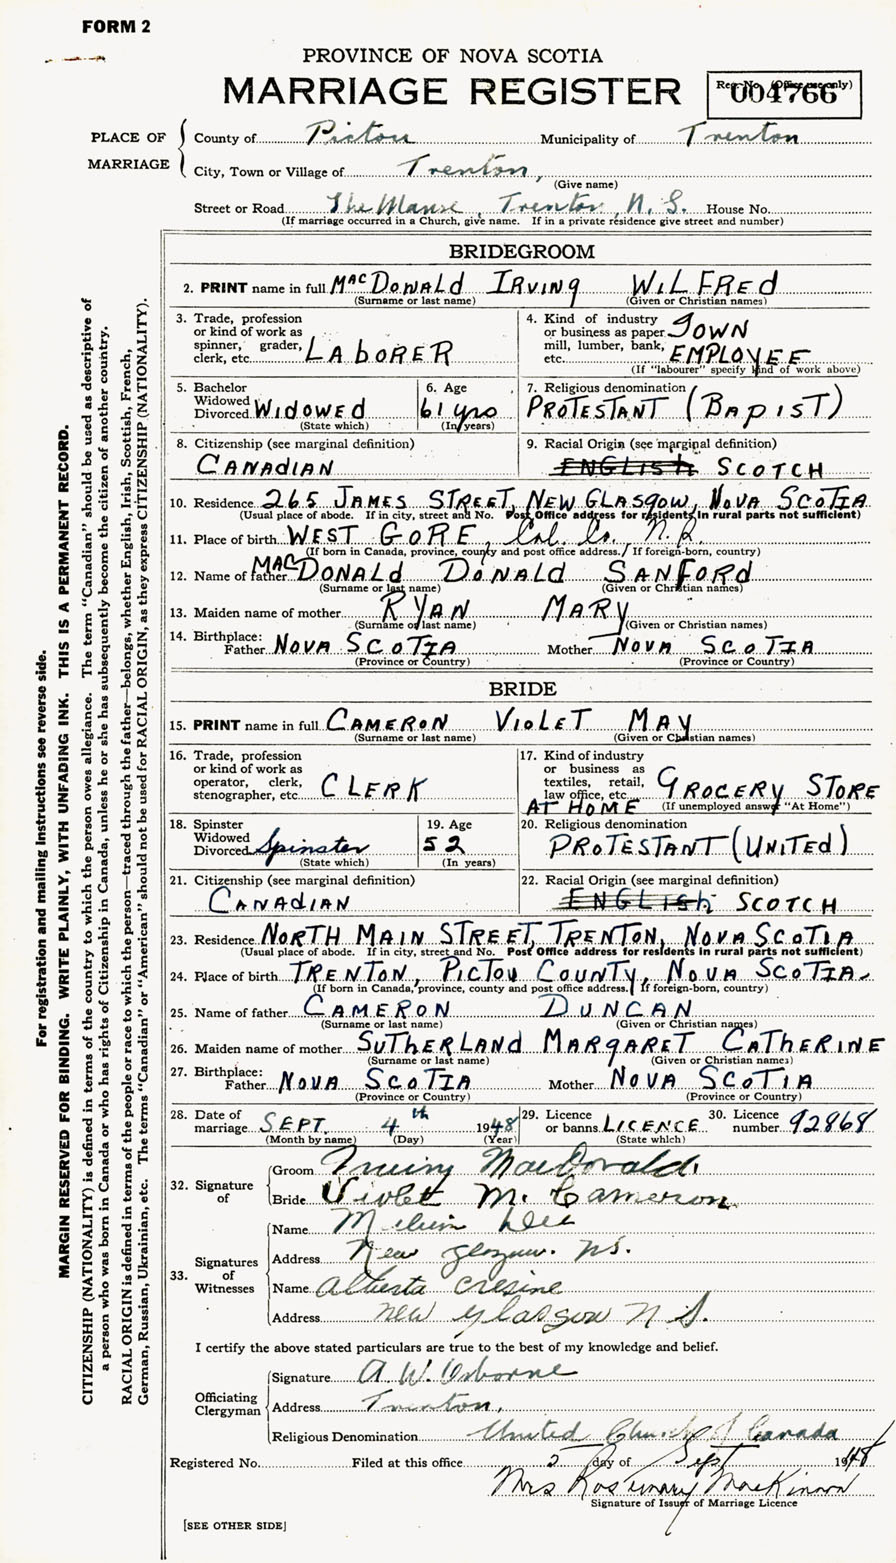 FORM 2
PROVINCE OF NOVA SCOTIA
MARRIAGE REGISTER
Reg. No. (Office use only)
004766
PLACE OF MARRIAGE
County of Pictou Municipality of Trenton
City, Town or Village of Trenton,
(Give name)
Street or Road The Manse, Trenton, N.S. House No.
(If marriage occurred in a Church, give name. If in a private residence give street and number)
BRIDEGROOM
2. PRINT name in full MacDONALd IRVINg WILFREd
(Surname or last name) (Given or Christian names)
3. Trade, profession or kind of work as spinner, grader, clerk, etc. LAbORER
4. Kind of industry or business as paper mill, lumber, bank, etc. TOWN EMPLOYEE
(If "labourer" specify kind of work above)
5. Bachelor Widowed Divorced WIdOWEd
(State which)
6. Age 61 yrs
(In years)
7. Religious denomination PROTESTANT (BAPIST)
8. Citizenship (see marginal definition) CANADIAN
9. Racial Origin (see marginal definition) ENGLISH SCOTCH
10. Residence 265 JAMES STREET, NEW GLASGOW, NOVA SCOTIA
(Usual place of abode. If in city, street and No. Post Office address for residents in rural parts not sufficient)
11. Place of birth WEST GORE,
(If born in Canada, province, county and post office address. If foreign-born, country)
12. Name of father MACDONALd DONALd SANFORd
(Surname or last name) (Given or Christian names)
13. Maiden name of mother RYAN MARY
(Surname or last name) (Given or Christian names)
14. Birthplace:
Father NOVA SCOTIA Mother NOVA SCOTIA
(Province or Country) (Province or Country)
BRIDE
15. PRINT name in full CAMERON VIOLET MAY
(Surname or last name) (Given or Christian names)
16. Trade, profession or kind of work as operator, clerk, stenographer, etc. CLERK
17. Kind of industry or business as textiles, retail, law office, etc. GROCERY STORE
AT HOME (If unemployed answer "At Home")
18. Spinster Widowed Divorced Spinster
(State which)
19. Age 52
(In years)
20. Religious denomination PROTESTANT (UNITEd)
21. Citizenship (see marginal definition) CANADIAN
22. Racial Origin (see marginal definition) ENGLISH SCOTCH
23. Residence NORTH MAIN STREET, TRENTON, NOVA SCOTIA
(Usual place of abode. If in city, street and No. Post Office address for residents in rural parts not sufficient)
24. Place of birth TRENTON, PICTOU COUNTY, NOVA SCOTIA
(If born in Canada, province, county and post office address. If foreign-born, country)
25. Name of father CAMERON DUNCAN
(Surname or last name) (Given or Christian names)
26. Maiden name of mother SUTHERLANd MARGARET CATHERINE
(Surname or last name) (Given or Christian names)
27. Birthplace:
Father NOVA SCOTIA Mother NOVA SCOTIA
(Province or Country) (Province or Country)
28. Date of marriage SEPT. 4th 1948
(Month by name) (Day) (Year)
29. Licence or banns LICENCE
(State which)
30. Licence number 92868
32. Signature of
Groom Irving MacDonald.
Bride Violet M. Cameron
33. Signatures of Witnesses
Name Melvin
Address New Glasgow. N.S.
Name Alberta
Address New Glasgow N.S.
I certify the above stated particulars are true to the best of my knowledge and belief.
Officiating Clergyman
Signature A. W. Osborne
Address Trenton,
Religious Denomination United Church of Canada
Registered No. Filed at this office 5 day of Sept 1948
Mrs Rosemary MacKinnon
Signature of Issuer of Marriage Licence
[SEE OTHER SIDE]
For registration and mailing instructions see reverse side.
MARGIN RESERVED FOR BINDING. WRITE PLAINLY, WITH UNFADING INK. THIS IS A PERMANENT RECORD.
CITIZENSHIP (NATIONALITY) is defined in terms of the country to which the person owes allegiance. The term "Canadian" should be used as descriptive of
a person who was born in Canada or who has rights of Citizenship in Canada, unless he or she has subsequently become the citizen of another country.
RACIAL ORIGIN is defined in terms of the people or race to which the person—traced through the father—belongs, whether English, Irish, Scottish, French,
German, Russian, Ukrainian, etc. The terms "Canadian" or "American" should not be used for RACIAL ORIGIN, as they express CITIZENSHIP (NATIONALITY).